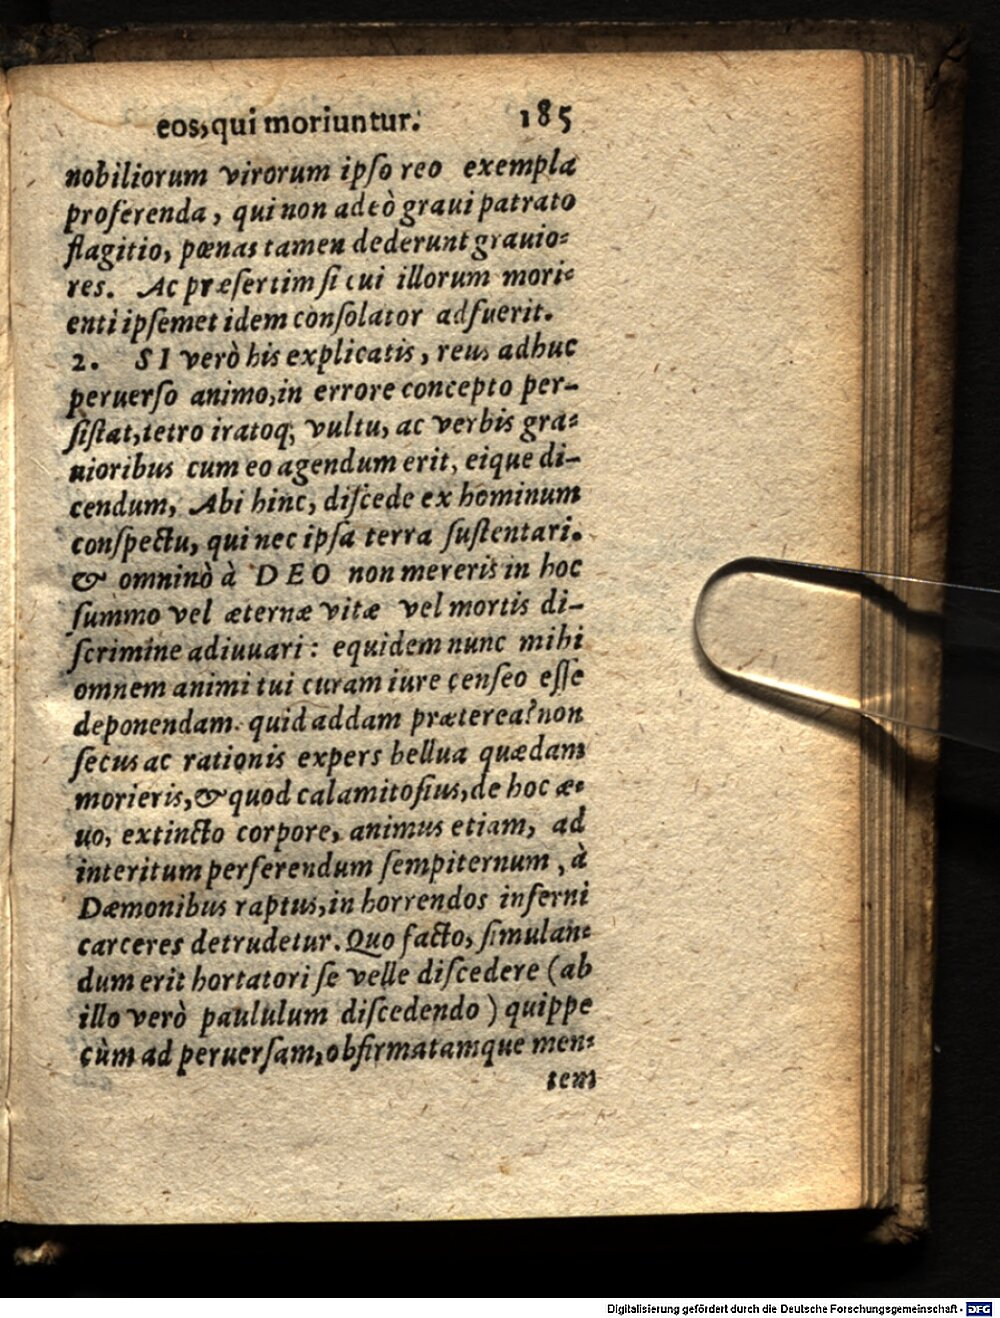 eos, qui moriuntur. 185
nobiliorum virorum ipſo reo exempla
proferenda, qui non adeò graui patrato
flagitio, pœnas tamen dederunt grauio-
res. Ac præſertim ſi cui illorum mori-
enti ipſemet idem conſolator adfuerit.
2. SI verò his explicatis, reus adhuc
peruerſo animo, in errore concepto per-
ſiſtat, tetro iratoq; vultu, ac verbis gra-
uioribus cum eo agendum erit, eique di-
cendum, Abi hinc, diſcede ex hominum
conſpectu, qui nec ipſa terra ſuſtentari.
& omninò à DEO non mereris in hoc
ſummo vel æternæ vitæ vel mortis di-
ſcrimine adiuuari: equidem nunc mihi
omnem animi tui curam iure cenſeo eſſe
deponendam. quid addam præterea? non
ſecus ac rationis expers bellua quædam
morieris, & quod calamitoſius, de hoc æ-
uo, extincto corpore, animus etiam, ad
interitum perferendum ſempiternum, à
Dæmonibus raptus, in horrendos inferni
carceres detrudetur. Quo facto, ſimulan-
dum erit hortatori ſe velle diſcedere (ab
illo verò paululum diſcedendo) quippe
cùm ad peruerſam, obfirmatamque men-
tem
Digitalisierung gefördert durch die Deutsche Forschungsgemeinschaft - DFG